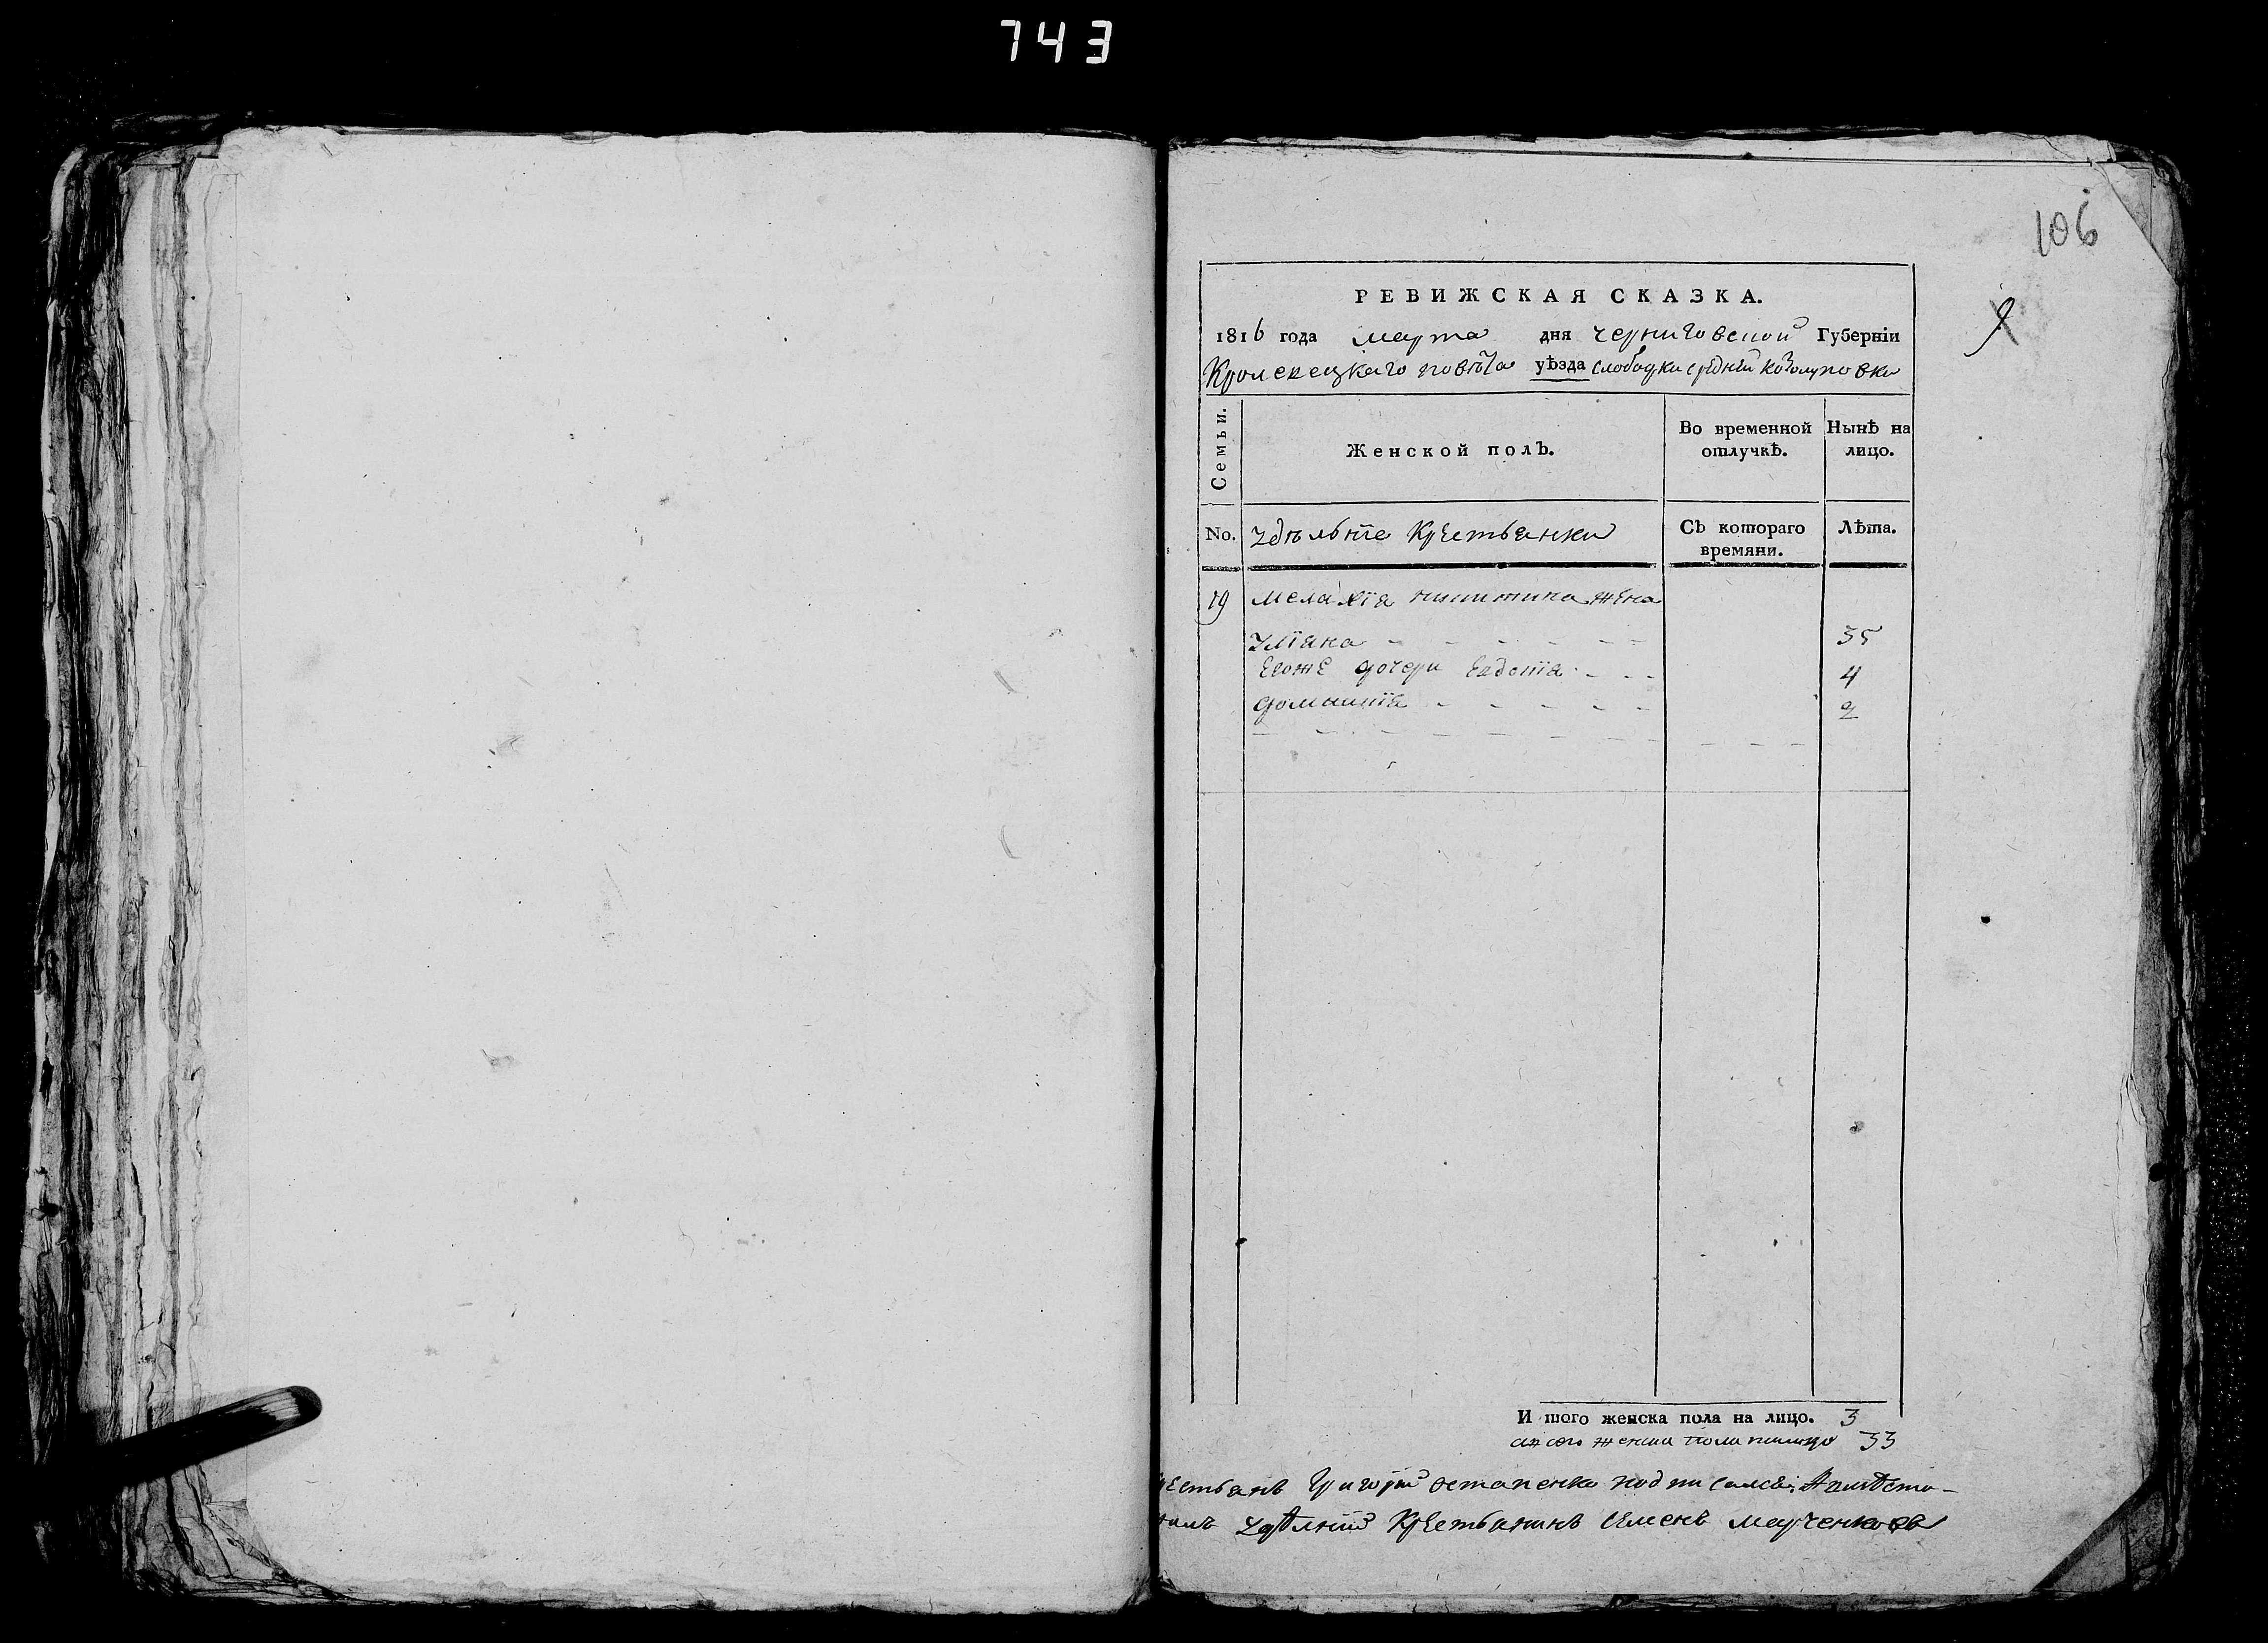 743
106
РЕВИЖСКАЯ СКАЗКА.
1816 года марта дня черниговской Губернїи
Кролевецкаго повѣта уѣзда слободки средней
Семьи.
Женской полъ.
Во временной отлучкѣ.
Нынѣ на лицо.
No. удѣлние крестьянки
Съ котораго времяни.
Лѣта.
19 жена
Улїяна 35
Егоже дочери Евдокїя 4
2
И того женска пола на лицо. 3
женска пола налицо 33
Григорїй остапенко подписался,
удѣлний крестьянинъ Семенъ марченковъ